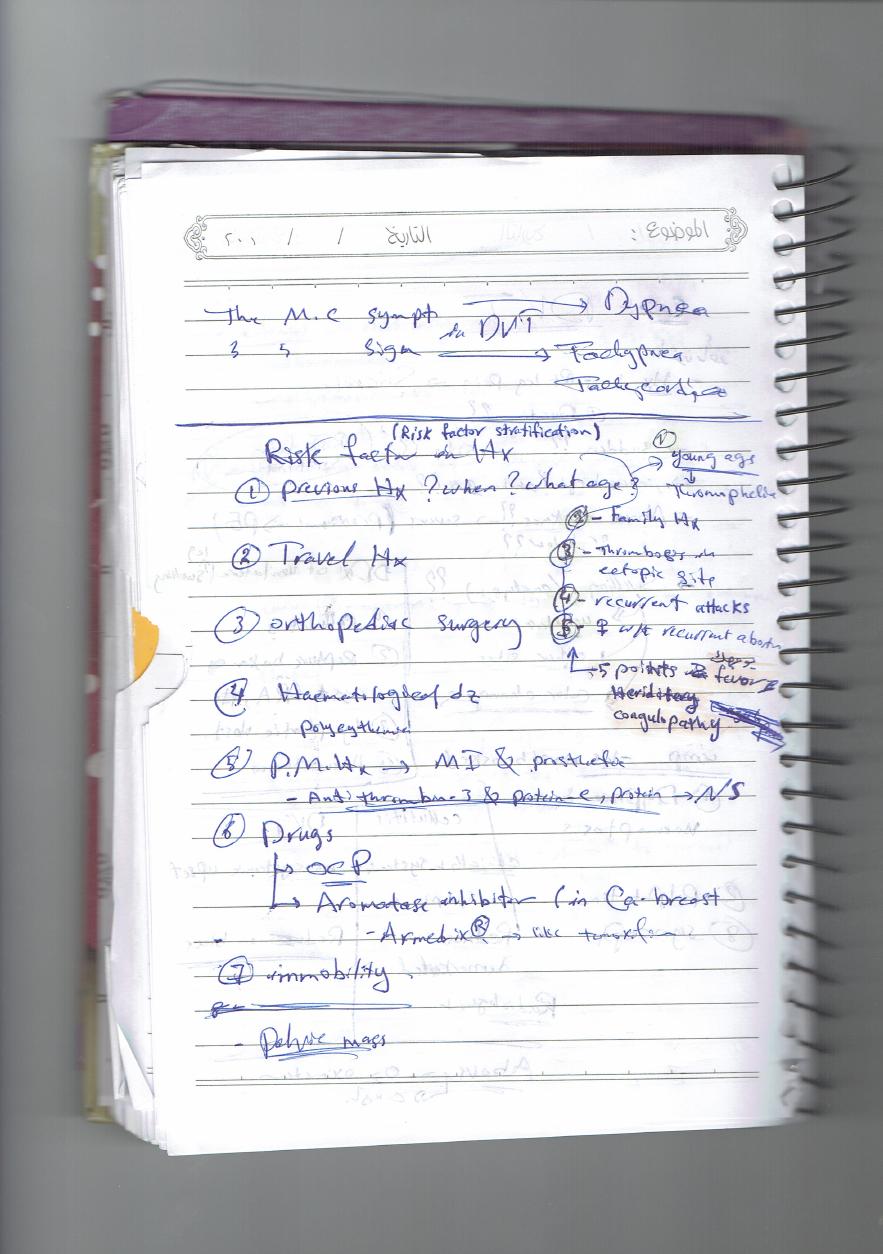 الموضوع : التاريخ / / ٢٠١
The M.C sympt in DVT → Dypnea
3 5 sign → Tachypnea
Tachycardia
(Risk factor stratification)
Risk factor in Hx
① previous Hx ? when ? what age ?
② Travel Hx
③ orthopediac surgery
④ Haematological dz
polycythemia
⑤ P.M.Hx → MI &
- Anti thrombin-3 & protein-c, protein → N/S
⑥ Drugs
↳ OCP
↳ Aromatase inhibitor (in Ca-breast
- Armedix® → like tamoxifen
⑦ immobility
- Pelvic mass
① young age
↓
Thromphelia
② - Family Hx
③ - Thrombosis in
ectopic site
④ - recurrent attacks
⑤ - ♀ with recurrent abortn
↳ 5 points favor
Heriditary
coagulopathy